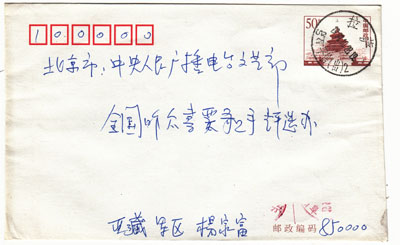 50分
100000
北京市:中央人民广播电台文艺部
全国听众喜爱歌手评选办
西藏军区 杨家富
邮政编码 850000